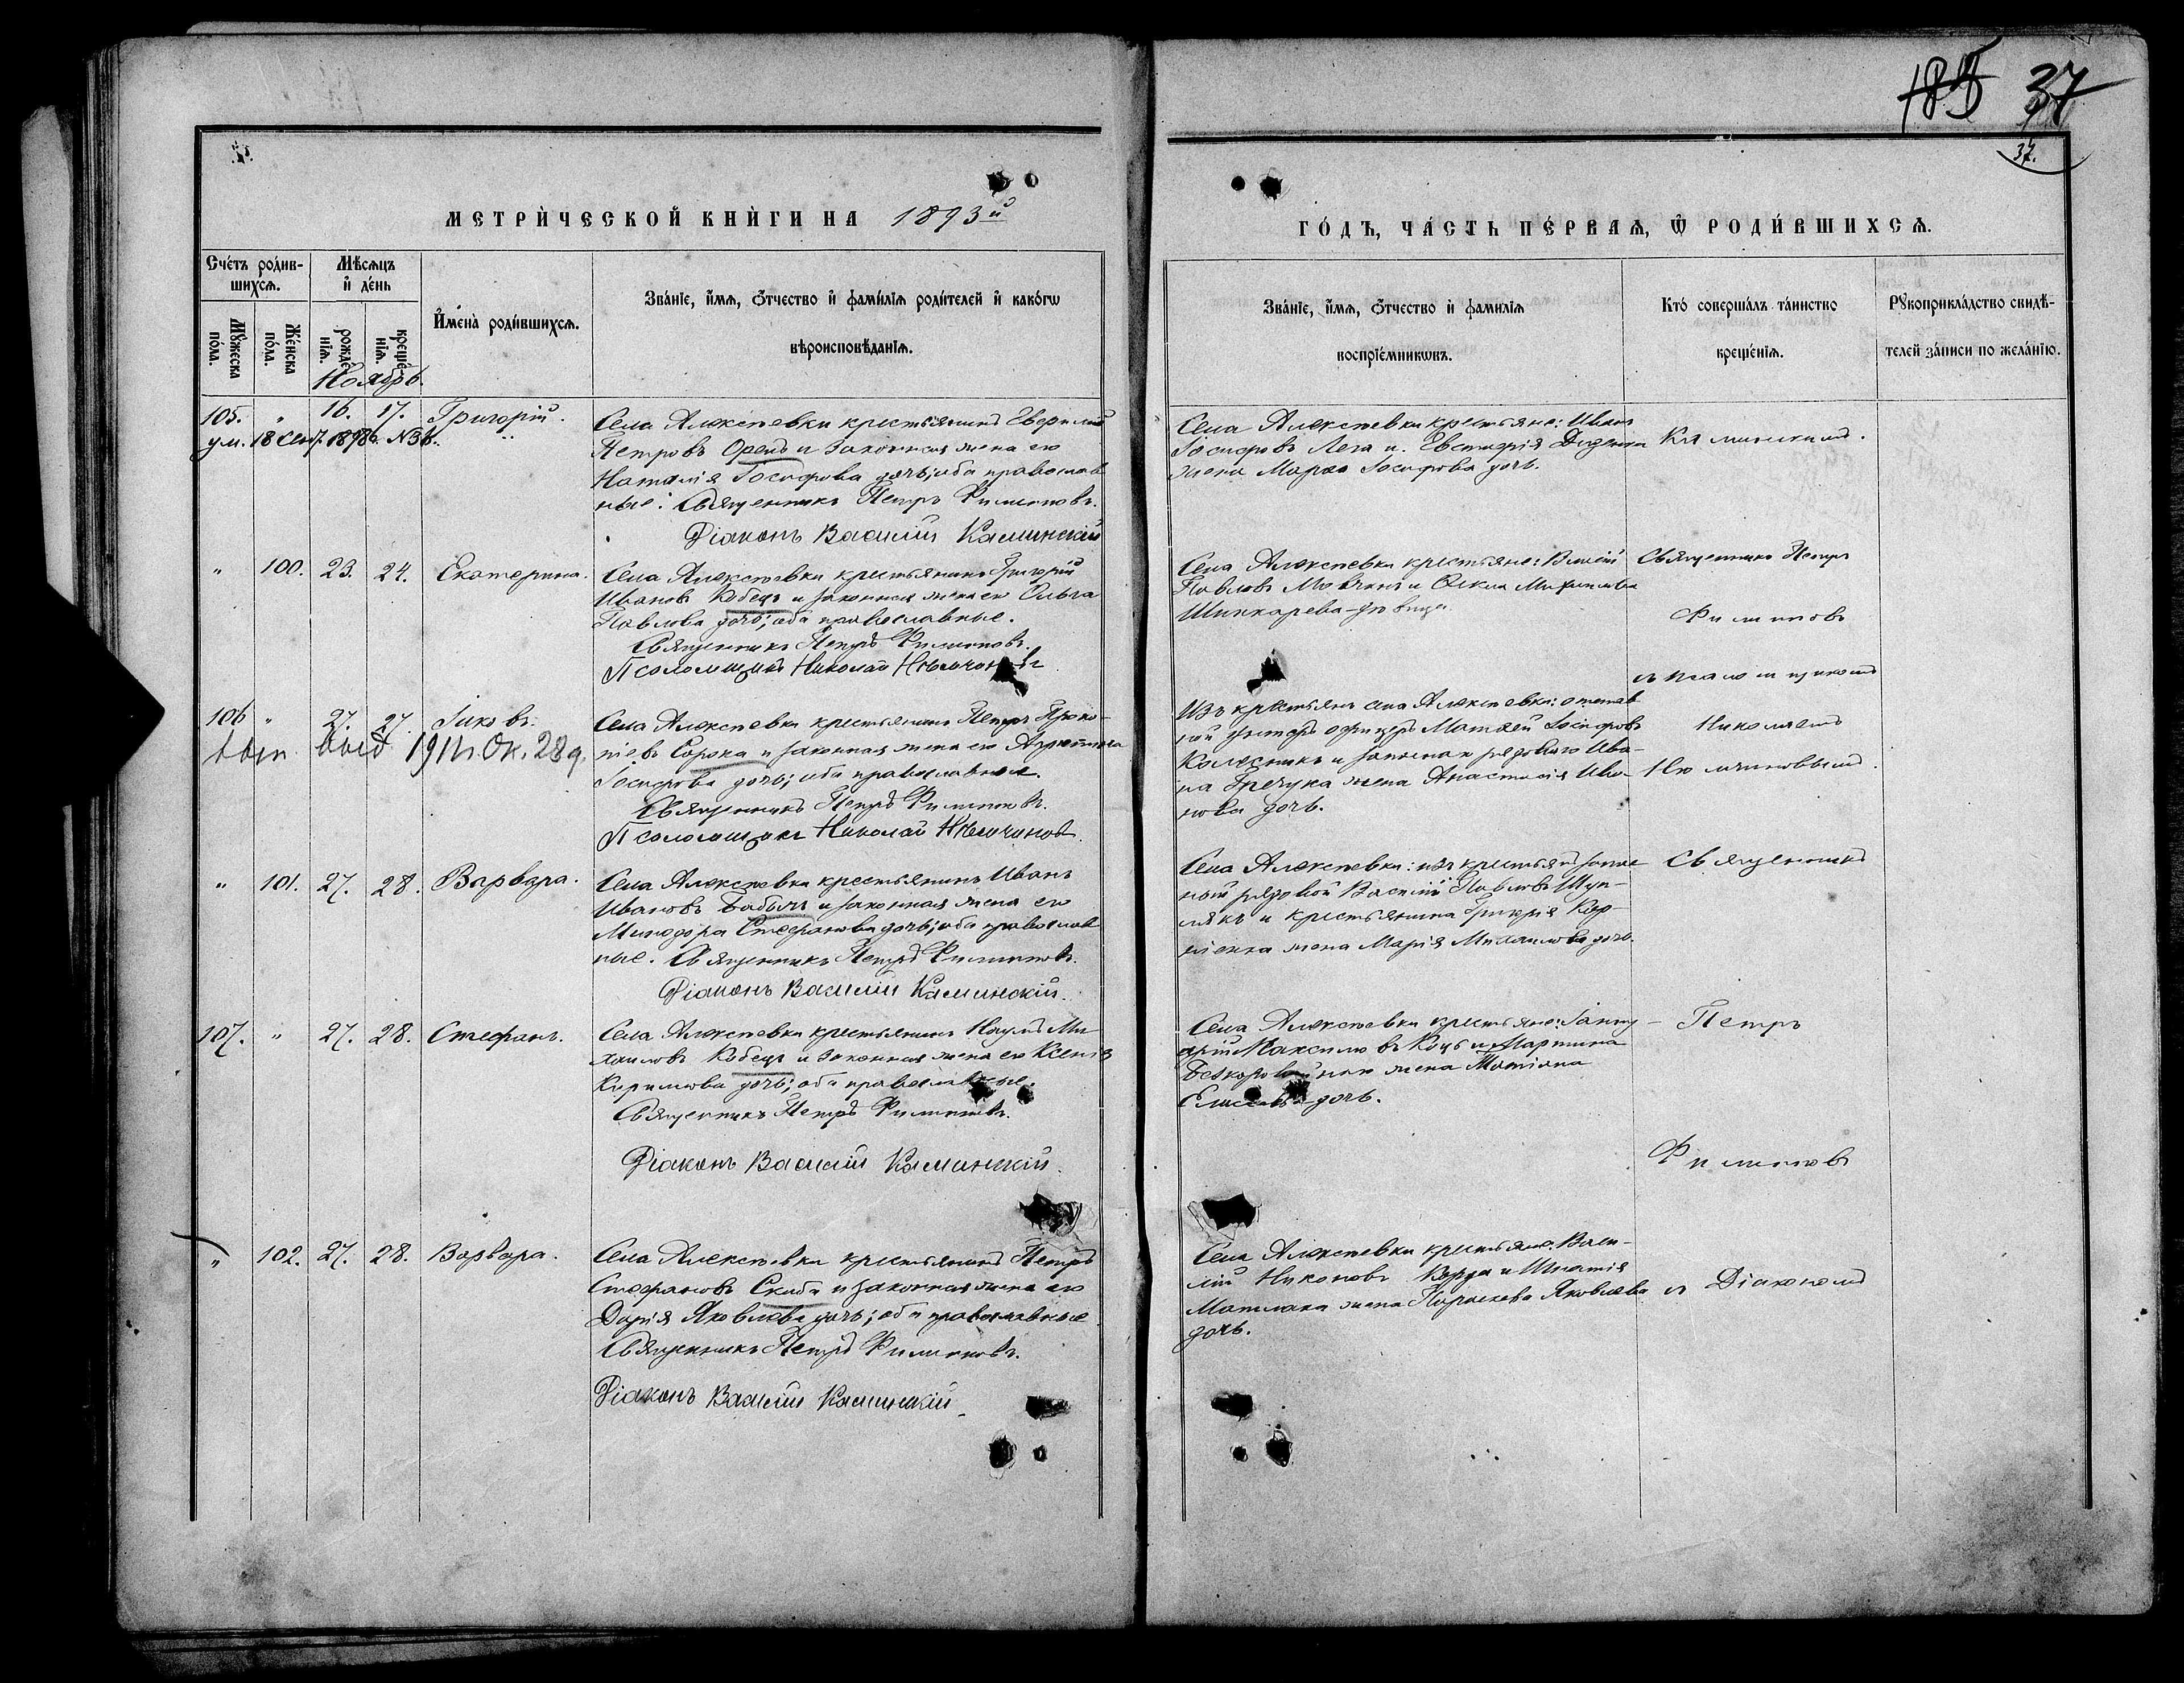 37
37.
МЕТРИ́ЧЕСКОЙ КНИ́ГИ НА 1893й
ГО́ДЪ, ЧА́СТЬ ПЕ́РВАѦ, Ѿ РОДИ́ВШИХСѦ.
Сче́тъ роди́в-
шихсѧ.
Мꙋ́жеска по́ла.
Же́нска по́ла.
Мѣ́сѧцъ
и҆ де́нь
рожде́нїѧ.
креще́нїѧ.
И҆мена̀ роди́вшихсѧ.
Зва́нїе, и҆́мѧ, ѻ҆́тчество и҆ фами́лїѧ роди́телей и҆ како́гѡ
вѣроисповѣ́данїѧ.
Зва́нїе, и҆́мѧ, ѻ҆́тчество и҆ фами́лїѧ
воспрїе́мникѡвъ.
Кто̀ соверша́лъ та́инство
креще́нїѧ.
Рꙋкоприкла́дство свидѣ́-
телей за́писи по жела́нїю.
Ноябрь.
105. " 16. 17. Григорій.
ум. 18 Сен
Села Алексѣевки крестьянинъ
Петровъ Орелъ и законная жена его
Наталія Іосифова дочь; оба православ
ные. Священникъ Петръ Филиповъ.
Діаконъ Василій Каминскій
Села Алексѣевки крестьяне: Иванъ
Іосифовъ Лега и Евстафія
жена Марѳа Іосифова дочь.
Каминскимъ.
" 100. 23. 24. Екатерина.
Села Алексѣевки крестьянинъ Григорій
Ивановъ Кобецъ и законная жена его Ольга
Павлова дочь; оба православные.
Священникъ Петръ Филиповъ.
Псаломщикъ Николай
Села Алексѣевки крестьяне: Василій
Павловъ и Михаилова
Шинкарева дѣвица.
Священникъ Петръ
Филиповъ
съ псаломщикомъ
Николаемъ
106 " 27. 27. Іаковъ.
1914 Ок. 28 д.
Села Алексѣевки крестьянинъ Петръ Проко-
піевъ Сорока и законная жена его
Іосифова дочь; оба православные.
Священникъ Петръ Филиповъ.
Псаломщикъ Николай
Изъ крестьянъ села Алексѣевки: отстав
ной унтеръ офицеръ Матѳей Іосифовъ
Колесникъ и запасного рядового Ива-
на Гречука жена Анастасія Ива-
нова дочь.
" 101. 27. 28. Варвара.
Села Алексѣевки крестьянинъ Иванъ
Ивановъ Бабычъ и законная жена его
Минодора Стефанова дочь; оба православ
ные. Священникъ Петръ Филиповъ.
Діаконъ Василій Каминскій.
Села Алексѣевки: изъ крестьянъ запас
ной рядовой Василій Павловъ
и крестьянина Григорія
жена Марія Михаилова дочь.
Священникъ
107. " 27. 28. Стефанъ.
Села Алексѣевки крестьянинъ Наумъ Ми-
хаиловъ Кобецъ и законная жена его Ксенія
Кирилова дочь; оба православные.
Священникъ Петръ Филиповъ.
Діаконъ Василій Каминскій.
Села Алексѣевки крестьяне: Іанну-
арій Максимовъ и Мартина
жена Татіана
дочь.
Петръ
Филиповъ
" 102. 27. 28. Варвара.
Села Алексѣевки крестьянинъ Петръ
Стефановъ Скиба и законная жена его
Дарія Яковлева дочь; оба православные
Священникъ Петръ Филиповъ.
Діаконъ Василій Каминскій
Села Алексѣевки крестьяне: Васи-
лій Никоновъ и Игнатія
жена Параскева Яковлева
дочь.
съ Діакономъ